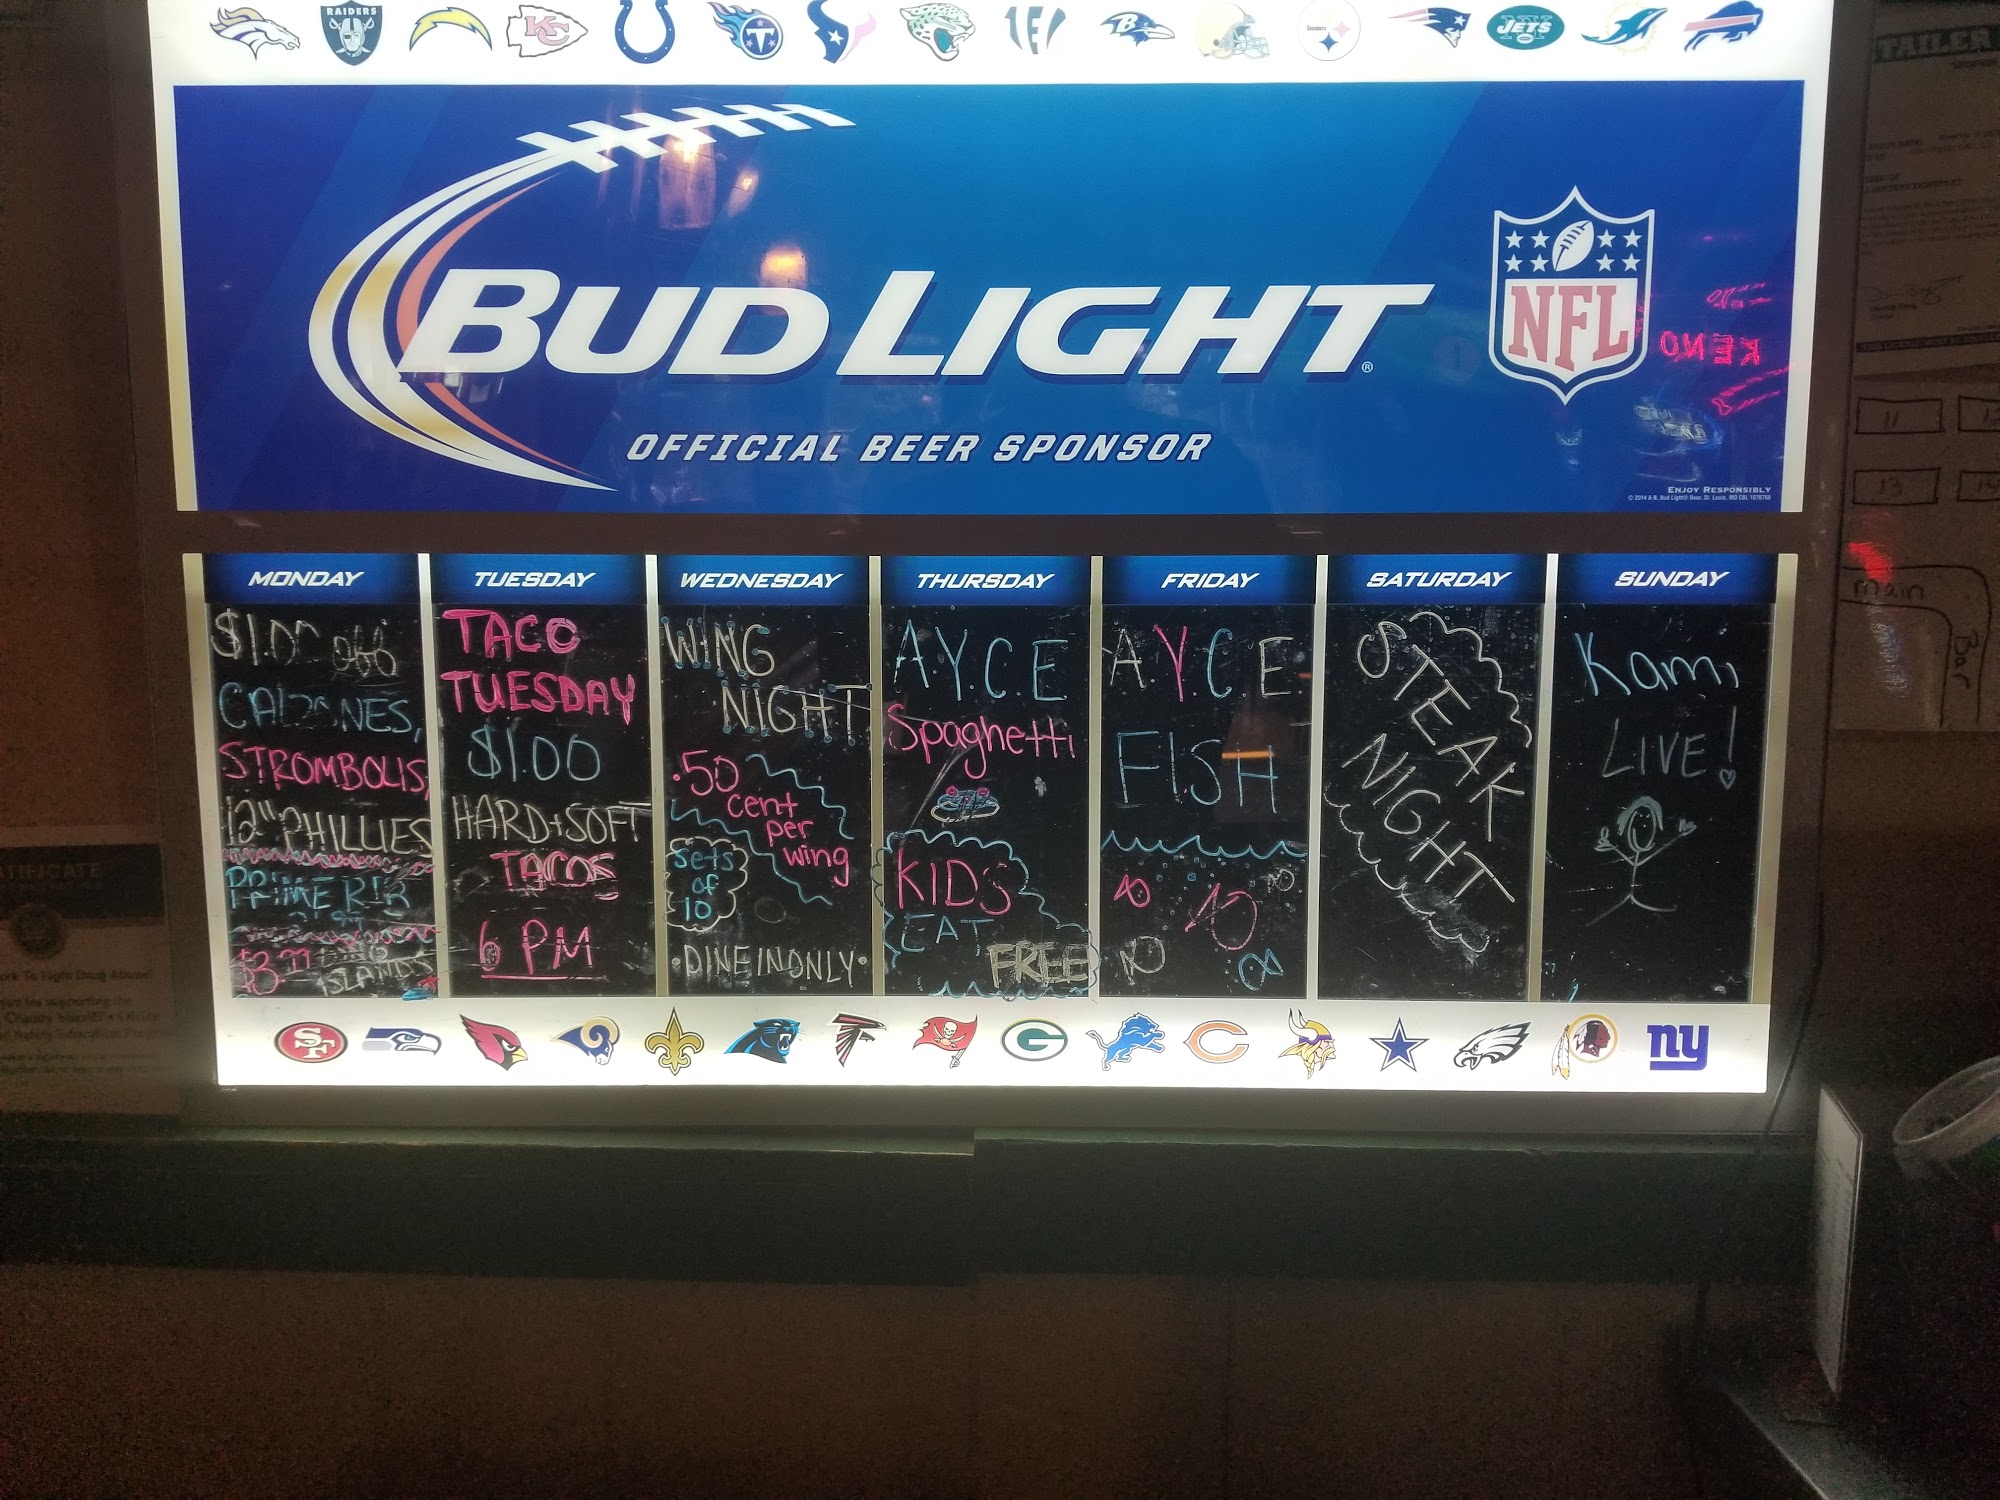 RAIDERS
KC
Steelers
JETS
BUD LIGHT®
NFL
OFFICIAL BEER SPONSOR
KENO
ENJOY RESPONSIBLY
MONDAY
$1.00 off
CALZONES,
STROMBOLIS,
12" PHILLIES
PRIME RIB
$3.99
ISLANDS
TUESDAY
TACO
TUESDAY
$1.00
HARD+SOFT
TACOS
6 PM
WEDNESDAY
WING
NIGHT
.50
cent
per
wing
sets
of
10
•DINE IN ONLY•
THURSDAY
A.Y.C.E
Spaghetti
KIDS
EAT
FREE
FRIDAY
A.Y.C.E.
FISH
SATURDAY
STEAK
NIGHT
SUNDAY
Kami
LIVE!
SF
G
C
ny
TAILER
11
13
main
Bar